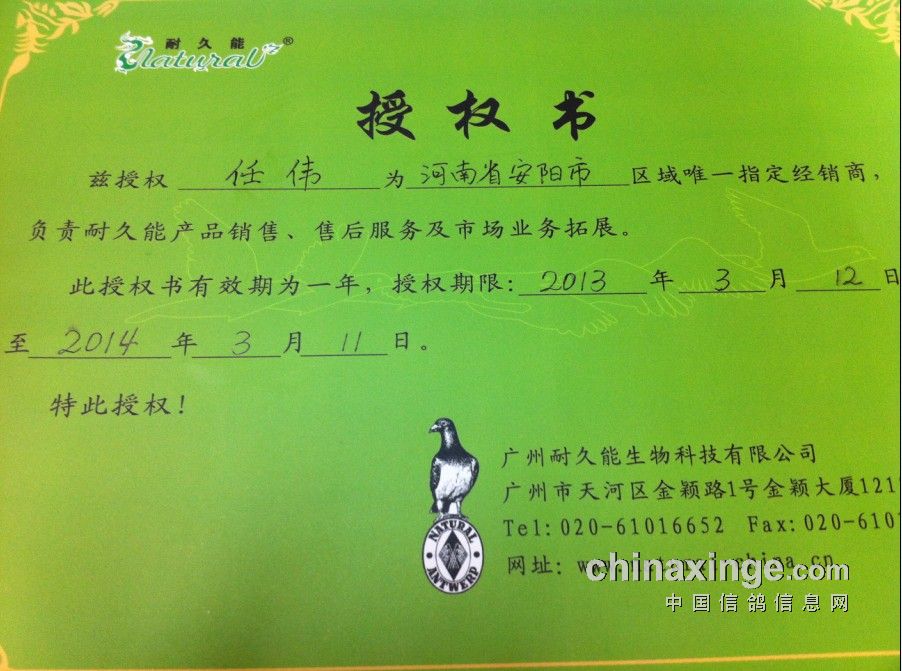 耐久能
Natural®
授权书
兹授权 任伟 为 河南省安阳市 区域唯一指定经销商,
负责耐久能产品销售、售后服务及市场业务拓展。
此授权书有效期为一年,授权期限:2013 年 3 月 12 日
至 2014 年 3 月 11 日。
特此授权!
广州耐久能生物科技有限公司
广州市天河区金颖路1号金颖大厦121
Tel:020-61016652 Fax:020-6101
网址:
NATURAL
ANTWERP
chinaxinge.com
中国信鸽信息网